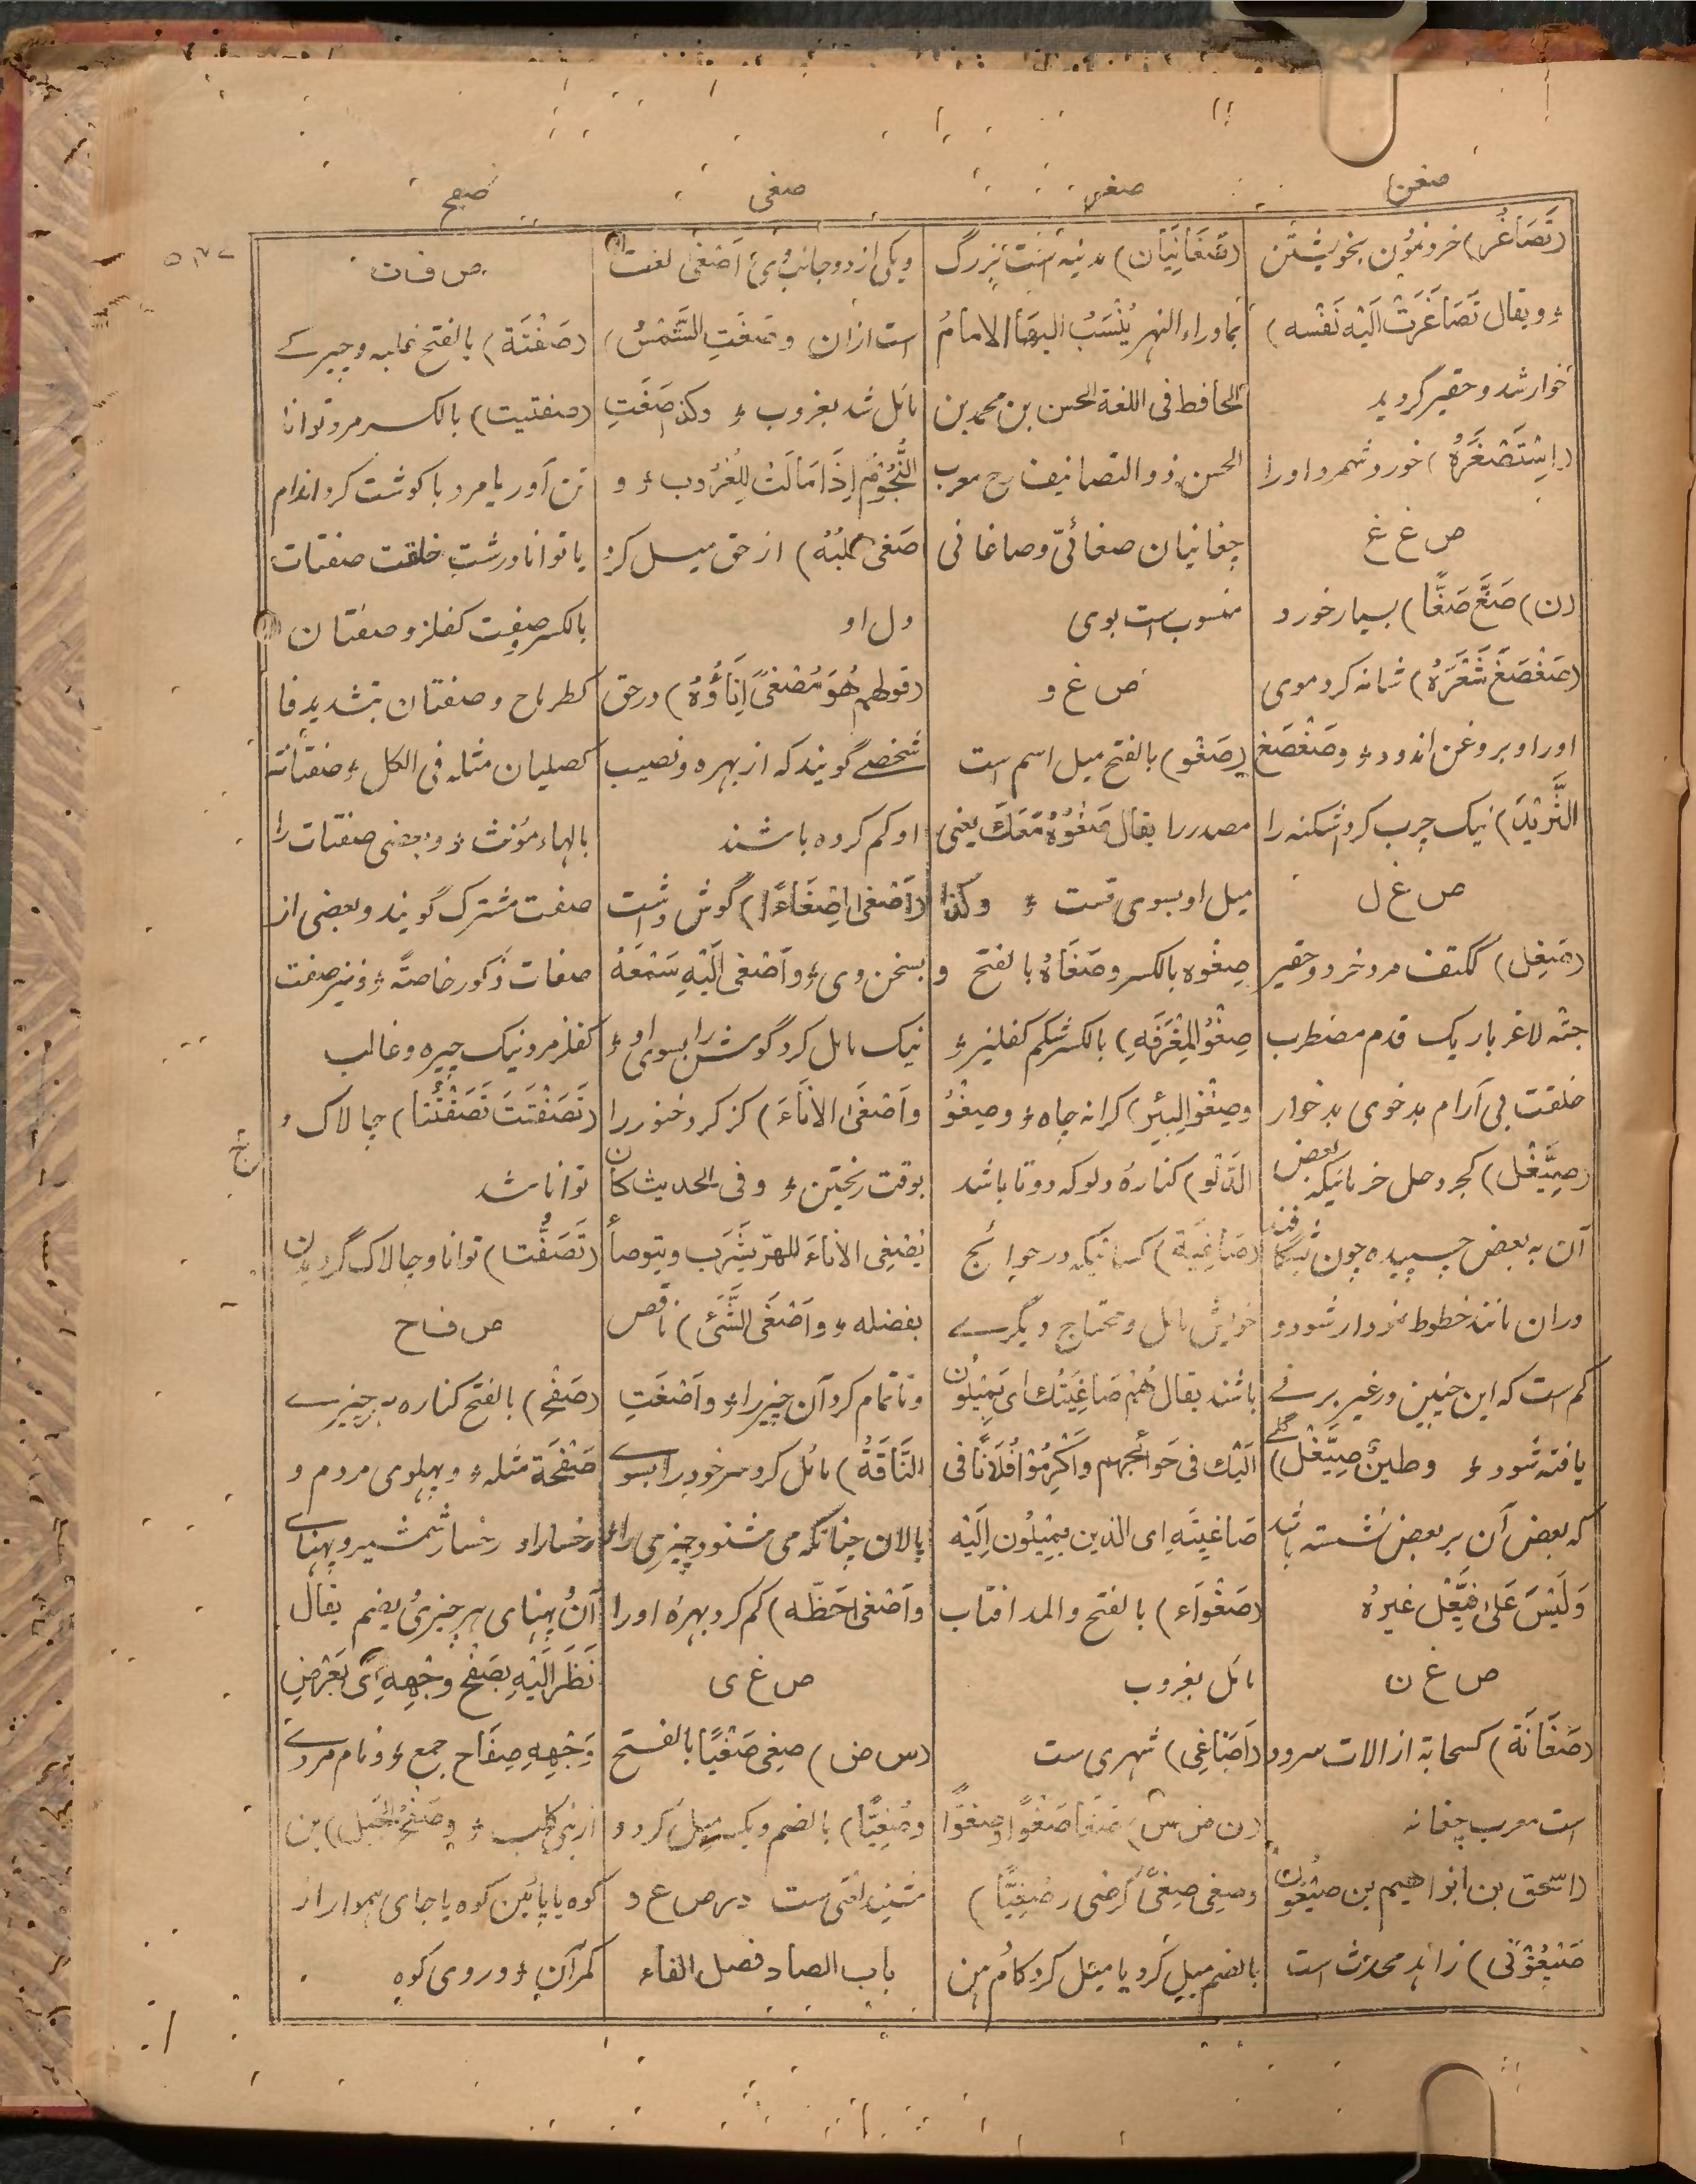 صغن
صغر
صغی
صفح
(تَصَاغُر) خرد نمودن بخویشتن
و یقال تَصَاغَرَتْ الَیْه نَفْسه)
خوار شد و حقیر گردید
(اِسْتَصْغَرَهُ) خورد شمرد اورا
ص غ غ
(ن) صَغَّ صَغًّا) بسیار خورد
(صَغْصَغَ شَعْرَهُ) شانه کرد موی
اورا و بروغن اندود و صَغْصَغَ
الثَّرِیْدَ) نیک چرب کرد اشکنه را
ص غ ل
(صَغِل) ککتف مرد خرد و حقیر
جثه لاغر باریک قدم مضطرب
خلقت بی آرام بدخوی بدخوار
(صِیَّغْل) کجردحل خرمائیکه بعض
آن به بعض چسپیده چون شگافند
دران مانند خطوط نمودار شود و
کم است که این چنین در غیر برنے
یافته شود و طینٌ صِیَّغْل) گلے
که بعض آن بر بعض نشسته باشد
وَلَیْسَ عَلیٰ فِیَّعْل غیرهُ
ص غ ن
(صَغَانَة) کسحابة از الات سرود
است معرب چغانه
(اسحٰق بن ابراهیم بن صَیْغُون
صَیْغُوْنی) زاهد محدث است
(صَغَانِیَان) مدینه است بزرگ
بماوراء النهر یُنْسَبُ الیها الامامُ
الحافظ فی اللغة الحسن بن محمد بن
الحسن ذو التصانیف رح معرب
چغانیان صغانیّ و صاغانی
منسوب است بوی
ص غ و
(صَغْو) بالفتح میل اسم است
مصدر را یقال صَغْوُهٗ مَعَكَ یعنی
میل او بسوی تست و کذا
صِغْوه بالکسر و صَغَاهُ بالفتح و
صِغْوُ المِغْرَفَهِ) بالکسر شکم کفلیز و
و صِغْوُ البِئر) کرانه چاه و و صِغْوُ
الدَّلْو) کنارهٔ دلو که دوتا باشد
(صَاغِیَة) کسانیکه در حوائج
خواہش مائل و محتاج دیگرے
باشند یقال هُمْ صَاغِیَتُك ای یَمِیْلُون
الَیْك فی حَوَائجهم وَاَكْرِمُوْا فُلَانًا فی
صَاغِیَتِهِ ای الذین یَمِیْلُون اِلَیْه
(صَغْوَاء) بالفتح والمد افتاب
مائل بغروب
(اَصَاغِی) شهری ست
(ن ض س) صَغَا صَغْوًا و صُغُوًّا
و صغی صِغیً کرضی و صُغِیًّا)
بالضم میل کرد یا میل کرد کام من
و یکی از دو جانب وی اَصْغَیٰ لغت
است ازان و صَغَتِ الشَّمْسُ)
مائل شد بغروب و و کذا صَغَتِ
النُّجُوْمُ اِذَا مَالَتْ لِلْغُرُوب و و
صَغیٰ قلبُهُ) از حق میل کرد
دل او
(قولهم هُوَ مُصْغیً اِنَاؤُهُ) در حق
شخصے گویند که از بهره و نصیب
او کم کرده باشند
(اَصْغیٰ اِصْغَاءً) گوش داشت
بسخن وی و و اَصْغیٰ اِلَیْهِ سَمْعَهُ
نیک مائل کرد گوش را بسوی او
و اَصْغَیٰ الانَاءَ) کز کرد خنور را
بوقت ریختن و و فی الحدیث کان
یُصْغِی الانَاءَ للهِرّ یَشْرَب و یتوضأ
بفضله و و اَصْغَی الشَّئَ) ناقص
و ناتمام کرد آن چیز را و و اَصْغَتِ
النَّاقَةُ) مائل کرد سر خود را بسوے
پالان چنانکه می شنود چیزی را
و اَصْغیٰ حَظَّه) کم کرد بهرهٔ اورا
ص غ ی
(س ض) صغی صَغْیًا بالفتح
و صُغِیًّا) بالضم و یکسر میل کرد و
شنید لغتی ست در ص غ و
باب الصاد فصل الفاء
ص ف ت
(صَفْتَة) بالفتح غلبه و چیرے
(صفتیت) بالکسر مرد توانا
تن آور یا مرد با گوشت گرد اندام
یا توانا درشت خلقت صفتات
بالکسر صِفِتّ کفلز و صفتان
کطرماح و صفتان بتشدید فا
کصلیان مثله فی الکل و صفتانة
بالهاء مؤنث و و بعضی صفتات را
صفت مشترک گویند و بعضی از
صفات ذکور خاصةً و و نیز صِفِت
کفلز مرد نیک چیره و غالب
(تَصَفْتَتَ تَصَفْتُتا) چالاک و
توانا شد
(تَصَفُّت) توانا و چالاک گردیدن
ص ف ح
(صَفْح) بالفتح کناره هر چیزے
صَفْحَة مثله و و پهلوی مردم و
رخسار او و رخسار شمشیر و پهنای
آن و پهنای هر چیزی و یضم یقال
نَظَرَ اِلَیْهِ بصَفْح وجْهِهِ اَیْ بعَرْضِ
وَجْهِهِ صِفَاح جمع و و نام مردے
از بنی کلب و و صَفْحُ الجَبَل) بن
کوه یا پائین کوه یا جای هموار از
کمر آن و و روی کوه